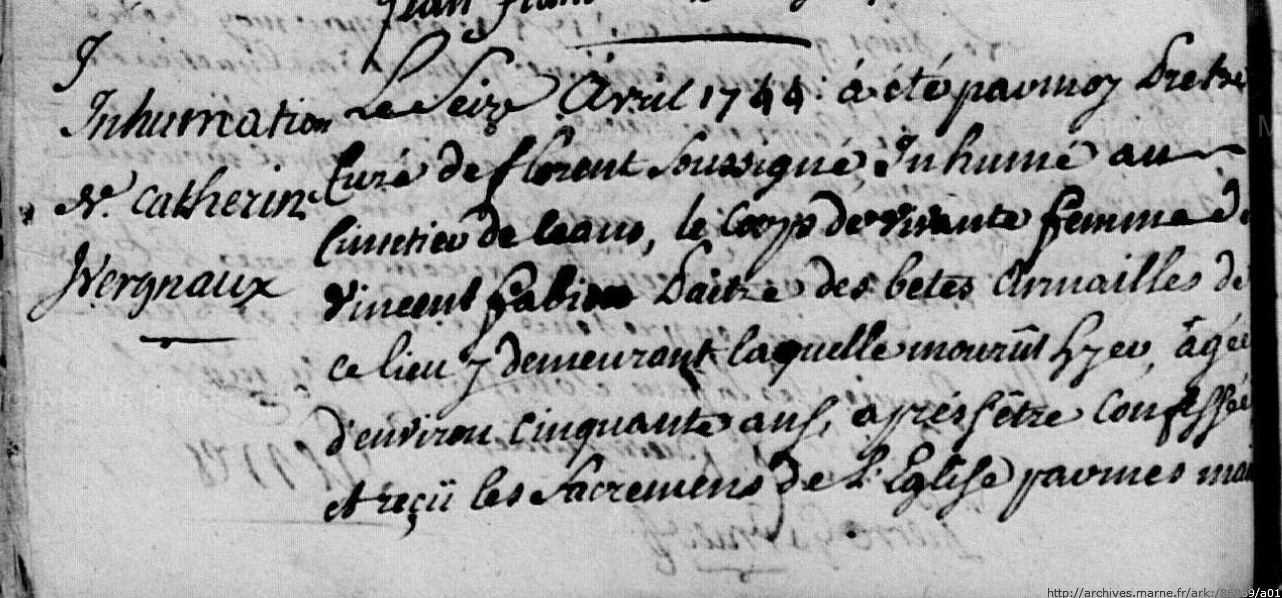 Jean
I
Inhumation
N. Catherine
Vergnaux
Le Seize Avril 1744: á été parmoy Pretre
Curé de florent soussigné, Inhumé au
Cimetier de leans, le Corps de vivante femme de
vincent fabi Paitre des betes Armailles de
ce lieu y demeurant laquelle mourût hyer, âgée
d'environ cinquante ans, aprés s'être Confessée
et reçü les Sacremens de l'Eglise parmes mai
http://archives.marne.fr/ark:/85869/a01